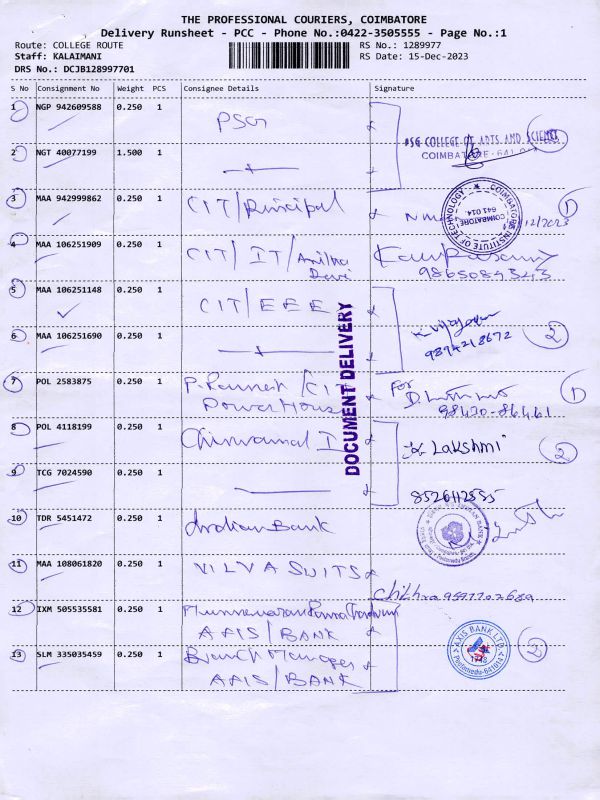 THE PROFESSIONAL COURIERS, COIMBATORE
Delivery Runsheet - PCC - Phone No.:0422-3505555 - Page No.:1
Route: COLLEGE ROUTE RS No.: 1289977
Staff: KALAIMANI RS Date: 15-Dec-2023
DRS No.: DCJB128997701
S No Consignment No Weight PCS Consignee Details Signature
1 NGP 942609588 0.250 1 PSG
PSG COLLEGE OF ARTS AND SCIENCE
COIMBATORE - 641 014
2 NGT 40077199 1.500 1
3 MAA 942999862 0.250 1 CIT/Principal
COIMBATORE INSTITUTE OF TECHNOLOGY
COIMBATORE 641 014.
12/2023 1
4 MAA 106251909 0.250 1 CIT/IT/Anitha
Devi
9865084343
5 MAA 106251148 0.250 1 CIT/EEE
6 MAA 106251690 0.250 1 2
9894218672
DOCUMENT DELIVERY
7 POL 2583875 0.250 1 CIT For 1
Power House 98420-86461
8 POL 4118199 0.250 1 Lakshmi 2
9 TCG 7024590 0.250 1
10 TDR 5451472 0.250 1 Indian Bank
11 MAA 108061820 0.250 1 VILVA SUITS
Chithra 9597702689
12 IXM 505535581 0.250 1
AXIS/BANK
AXIS BANK LTD.
13 SLM 335035459 0.250 1 Branch Manager 2
AXIS/BANK